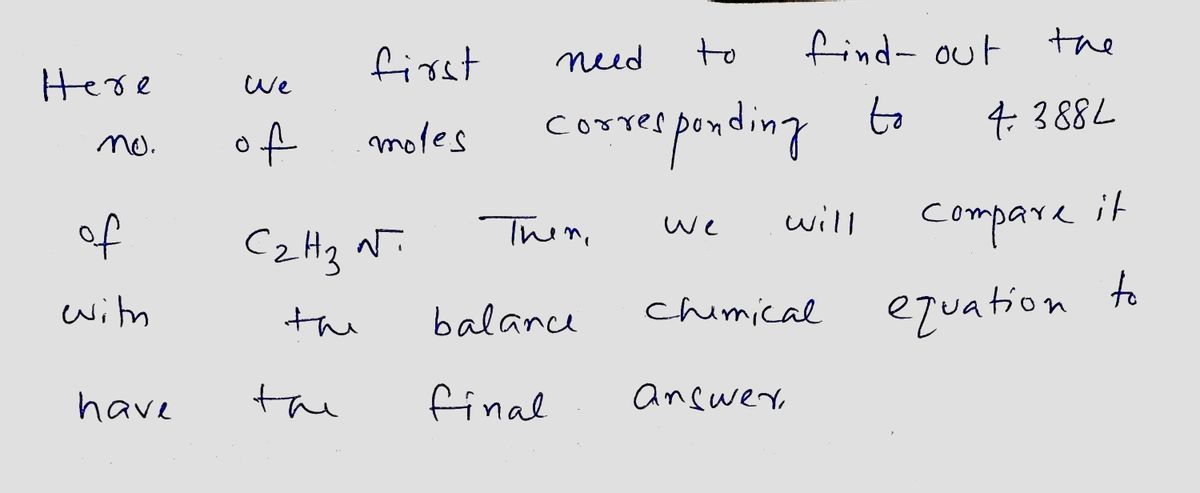 Here we first need to find-out the
no. of moles corresponding to 4.388L
of C2H3N. Then, we will compare it
with the balance chemical equation to
have the final answer.